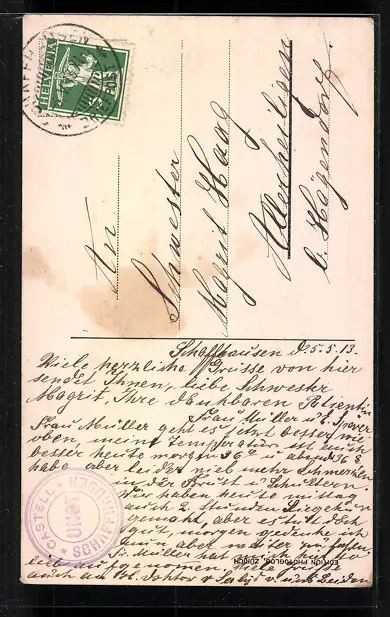 HELVETIA
An
Schwester
Magrit Haag
Allerheiligen
b. Hägendorf.
Schaffhausen d. 5.5.13.
Viele herzliche Grüsse von hier
sendet Ihnen, liebe Schwester
Magrit, Ihre dankbaren Patientin
Frau Müller u. E.
Frau Müller geht es jetzt besser wie
oben, meine Temperatur ist auch
besser heute morgen 36° u abends
habe aber leider viel mehr Schmerzen
in der Brust u Schultern.
Wir haben heute mittag
auch 2 stunden Liegekur
gemacht, aber es tut doch
gut, morgen gedenke ich
weiter zu
Fr. Müller hat mich hier so
lieb aufgenomen. Viele Grüsse
auch an Hl. Doktor v.
CASTELL MUNOT SCHAFFHAUSEN
EDITION PHOTOGLOB, ZÜRICH